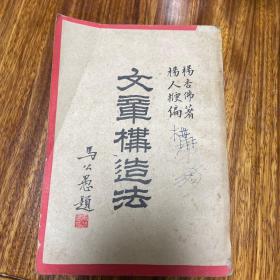 楊杏佛著
楊人楩編
文章構造法
馬公愚題